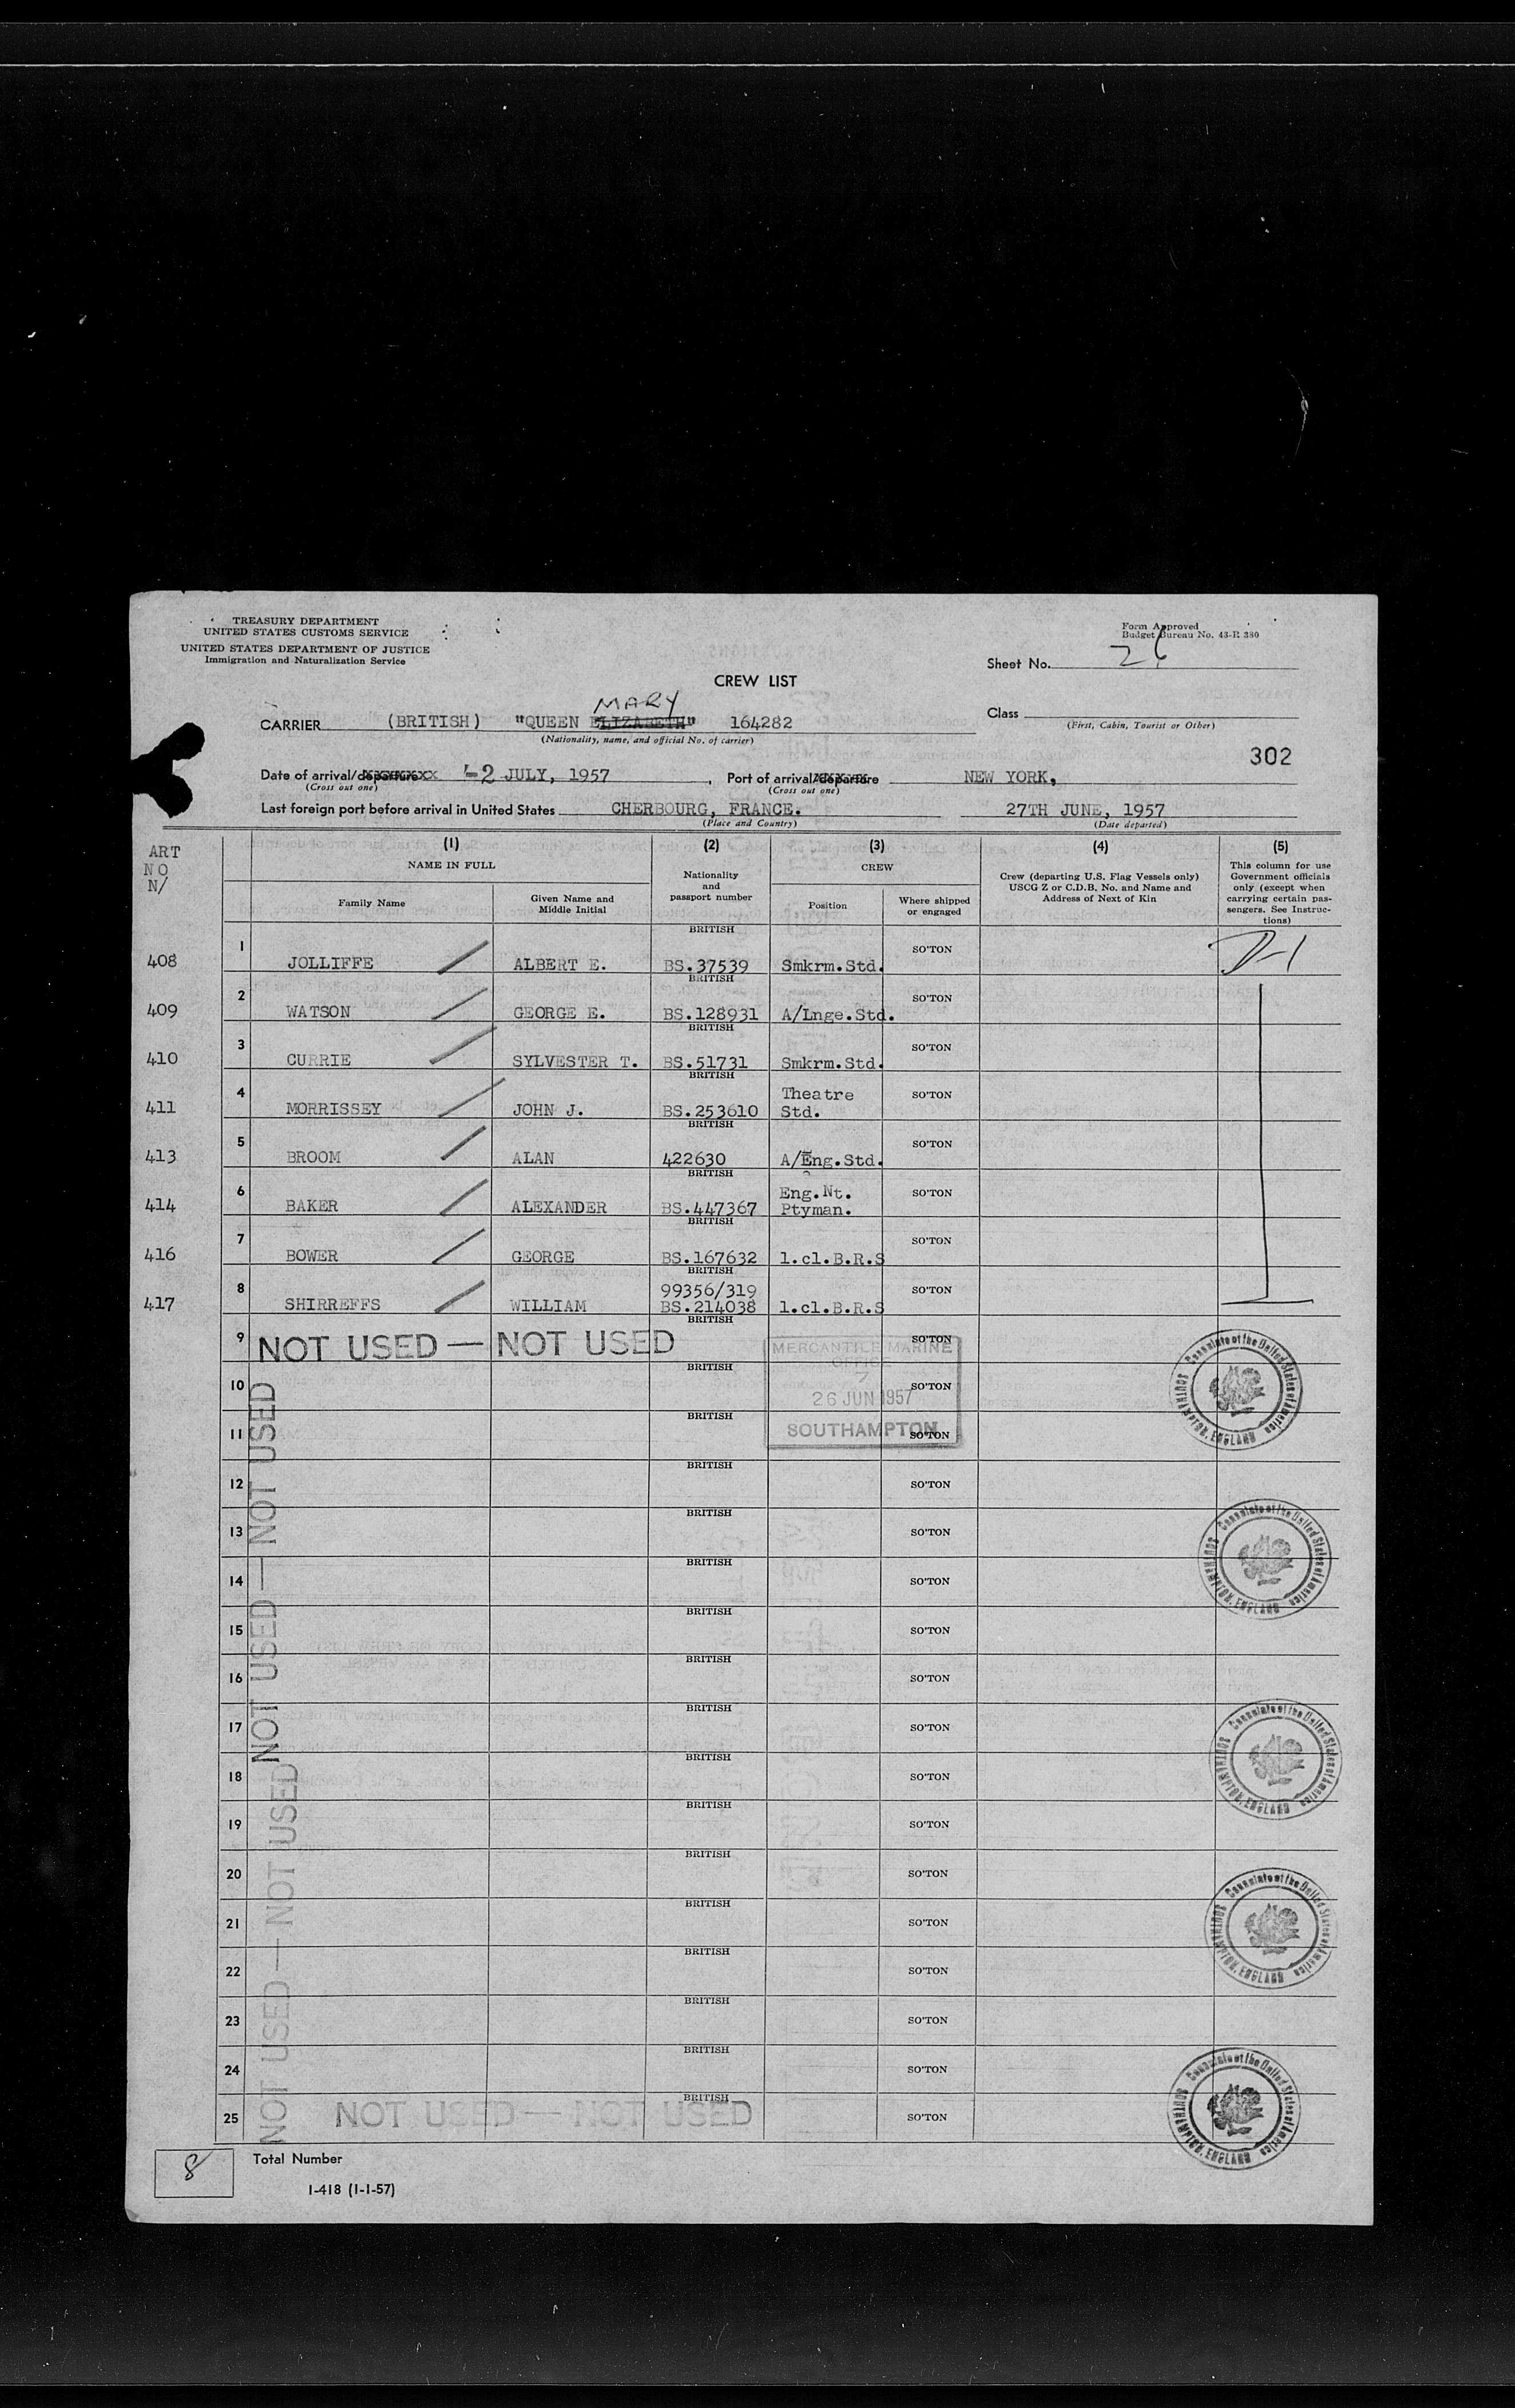 TREASURY DEPARTMENT
UNITED STATES CUSTOMS SERVICE
UNITED STATES DEPARTMENT OF JUSTICE
Immigration and Naturalization Service
Form Approved
Budget Bureau No. 43-R 380
Sheet No. 26
CREW LIST
MARY
CARRIER (BRITISH) "QUEEN ELIZABETH" 164282
(Nationality, name, and official No. of carrier)
Class
(First, Cabin, Tourist or Other)
302
Date of arrival/departure -2 JULY, 1957, Port of arrival/departure NEW YORK,
(Cross out one) (Cross out one)
Last foreign port before arrival in United States CHERBOURG, FRANCE. 27TH JUNE, 1957
(Place and Country) (Date departed)
ART
NO
N/
(1) (2) (3) (4) (5)
NAME IN FULL
Family Name
Given Name and
Middle Initial
Nationality
and
passport number
CREW
Position
Where shipped
or engaged
Crew (departing U.S. Flag Vessels only)
USCG Z or C.D.B. No. and Name and
Address of Next of Kin
This column for use
Government officials
only (except when
carrying certain pas-
sengers. See Instruc-
tions)
BRITISH
408 1 JOLLIFFE ALBERT E. BS.37539 Smkrm.Std. SO'TON
BRITISH
409 2 WATSON GEORGE E. BS.128931 A/Lnge.Std. SO'TON
BRITISH
410 3 CURRIE SYLVESTER T. BS.51731 Smkrm.Std. SO'TON
BRITISH
Theatre
411 4 MORRISSEY JOHN J. BS.253610 Std. SO'TON
BRITISH
413 5 BROOM ALAN 422630 A/Eng.Std. SO'TON
BRITISH
Eng.Nt.
414 6 BAKER ALEXANDER BS.447367 Ptyman. SO'TON
BRITISH
416 7 BOWER GEORGE BS.167632 1.cl.B.R.S SO'TON
BRITISH
99356/319
417 8 SHIRREFFS WILLIAM BS.214038 1.cl.B.R.S SO'TON
BRITISH
9 NOT USED — NOT USED SO'TON
MERCANTILE MARINE
OFFICE
26 JUN 1957
SOUTHAMPTON
BRITISH
10 SO'TON
BRITISH
11 SO'TON
BRITISH
12 SO'TON
BRITISH
13 SO'TON
BRITISH
14 SO'TON
BRITISH
15 SO'TON
BRITISH
16 SO'TON
BRITISH
17 SO'TON
BRITISH
18 SO'TON
BRITISH
19 SO'TON
BRITISH
20 SO'TON
BRITISH
21 SO'TON
BRITISH
22 SO'TON
BRITISH
23 SO'TON
BRITISH
24 SO'TON
BRITISH
25 NOT USED — NOT USED SO'TON
NOT USED — NOT USED — NOT USED
NOT USED — NOT USED
Consulate of the United States of America
SOUTHAMPTON, ENGLAND
Consulate of the United States of America
SOUTHAMPTON, ENGLAND
Consulate of the United States of America
SOUTHAMPTON, ENGLAND
Consulate of the United States of America
SOUTHAMPTON, ENGLAND
Consulate of the United States of America
SOUTHAMPTON, ENGLAND
8 Total Number
I-418 (1-1-57)